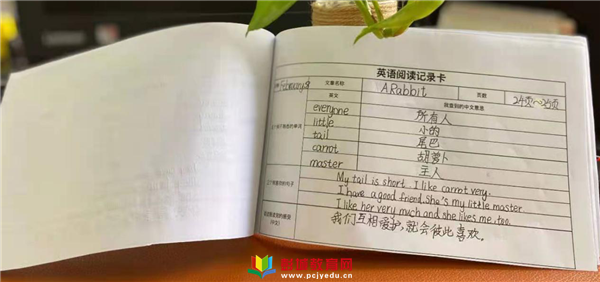 英语阅读记录卡
February
文章名称 A Rabbit 页数 24页~25页
英文 我查到的中文意思
everyone 所有人
little 小的
tail 尾巴
carrot 胡萝卜
master 主人
My tail is short. I like carrot very.
I have a good friend. She's my little master.
I like her very much and she likes me, too.
我们互相爱护,就会彼此喜欢。
www.pcjyedu.cn